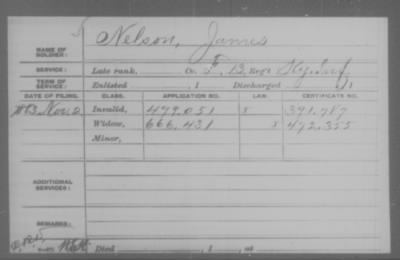 Nelson, James
NAME OF SOLDIER:
SERVICE: Late rank, Co. F, 13 Reg't Ky. Inf.
TERM OF SERVICE: Enlisted , 1 Discharged , 1
DATE OF FILING. CLASS. APPLICATION NO. LAW. CERTIFICATE NO.
Nov. 2 Invalid, 479.051 391.787
Widow, 666.431 472.355
Minor,
ADDITIONAL SERVICES:
REMARKS:
Died , 1 , at